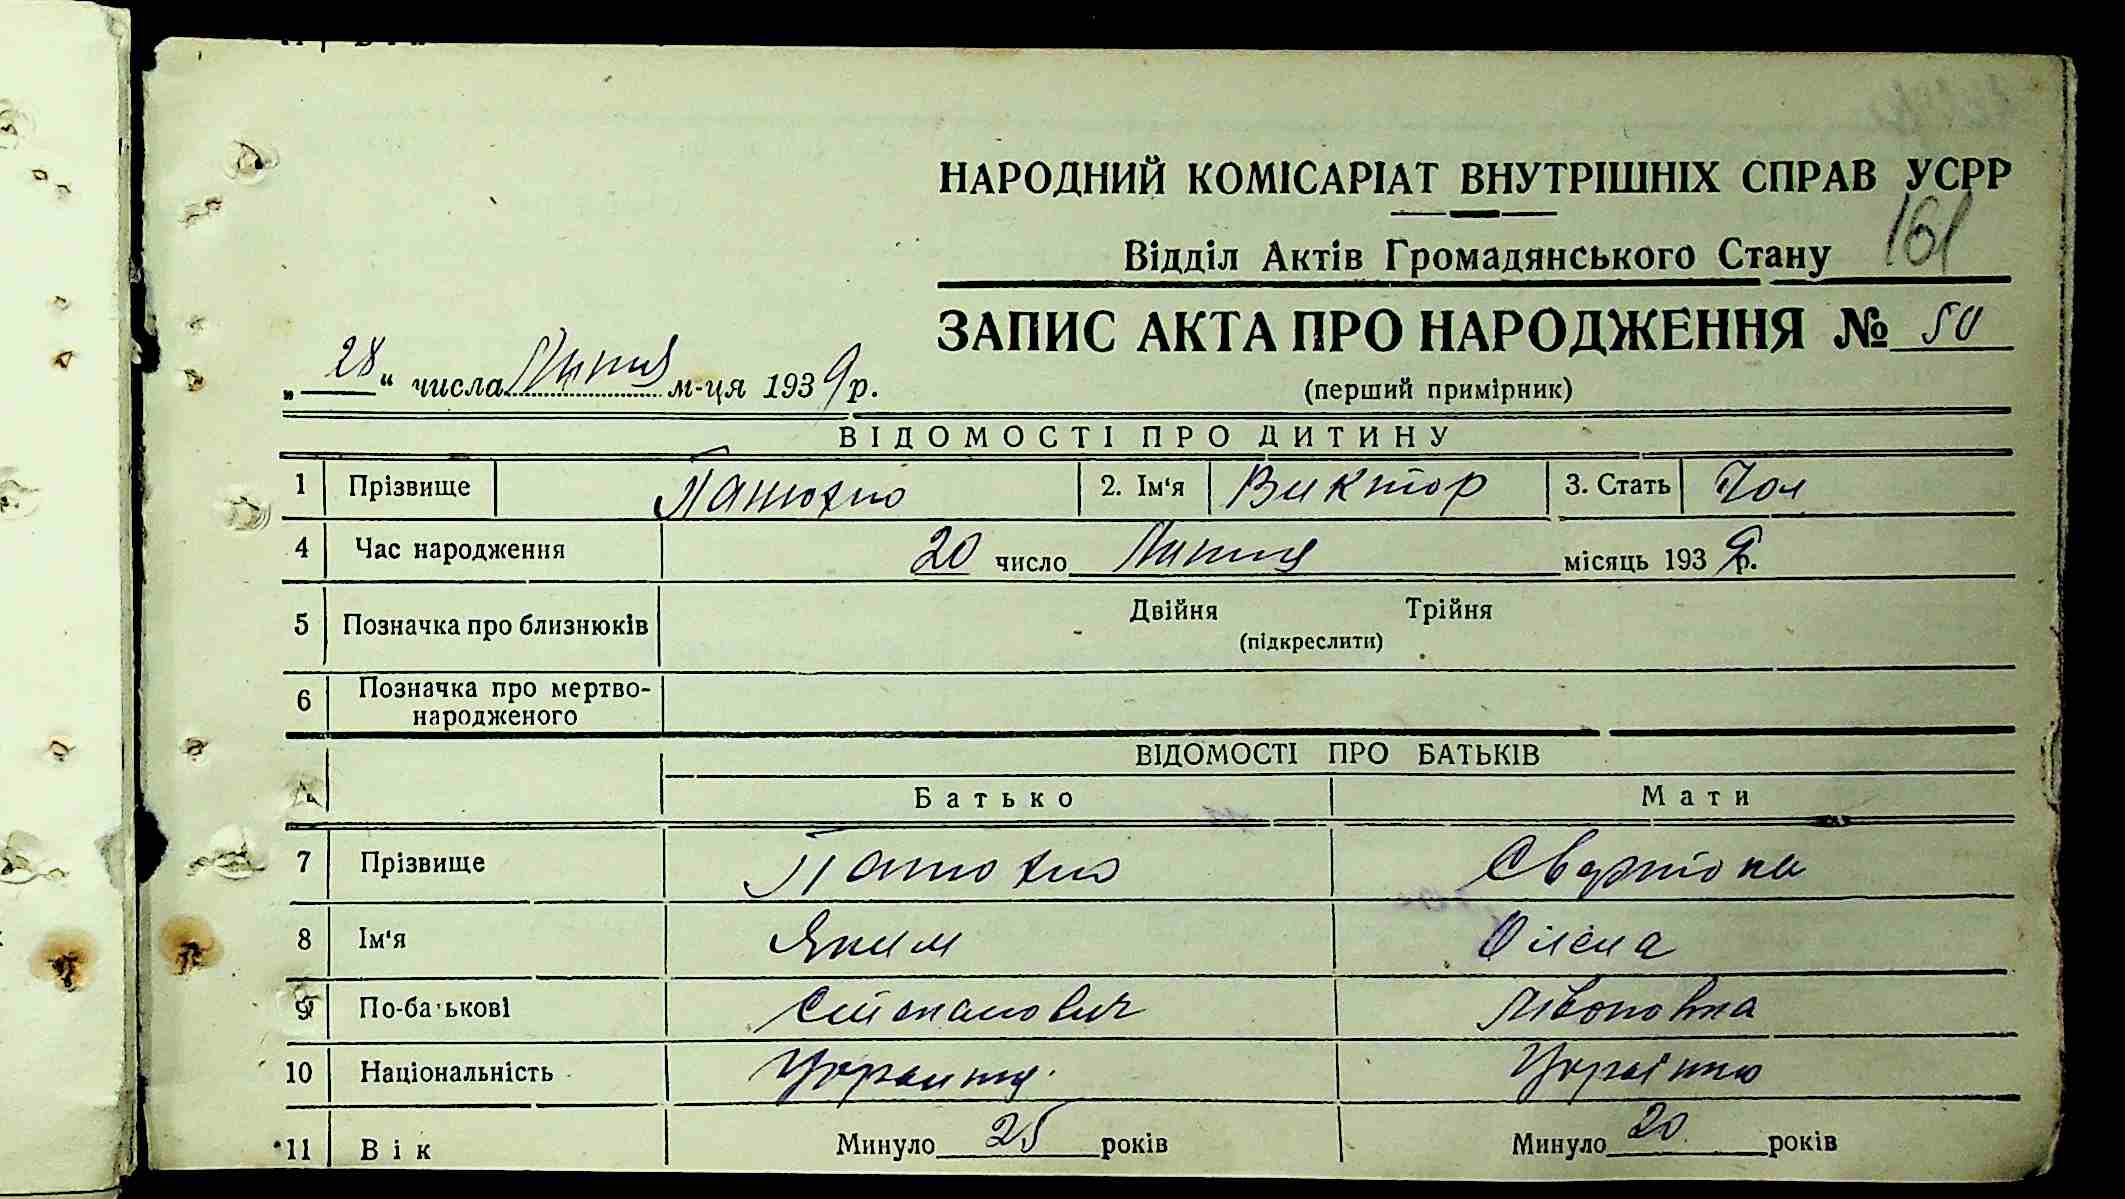 НАРОДНИЙ КОМІСАРІАТ ВНУТРІШНІХ СПРАВ УСРР
161
Відділ Актів Громадянського Стану
ЗАПИС АКТА ПРО НАРОДЖЕННЯ № 50
„28“ числа Липня м-ця 1939 р.
(перший примірник)
ВІДОМОСТІ ПРО ДИТИНУ
1 Прізвище Панюхно 2. Ім‘я Виктор 3. Стать Чол
4 Час народження 20 число Липня місяць 1939 р.
5 Позначка про близнюків Двійня Трійня
(підкреслити)
6 Позначка про мертво-
народженого
ВІДОМОСТІ ПРО БАТЬКІВ
Батько Мати
7 Прізвище Панюхно
8 Ім‘я Яким Олена
9 По-батькові Степанович
10 Національність Українка
11 Вік Минуло 25 років Минуло 20 років